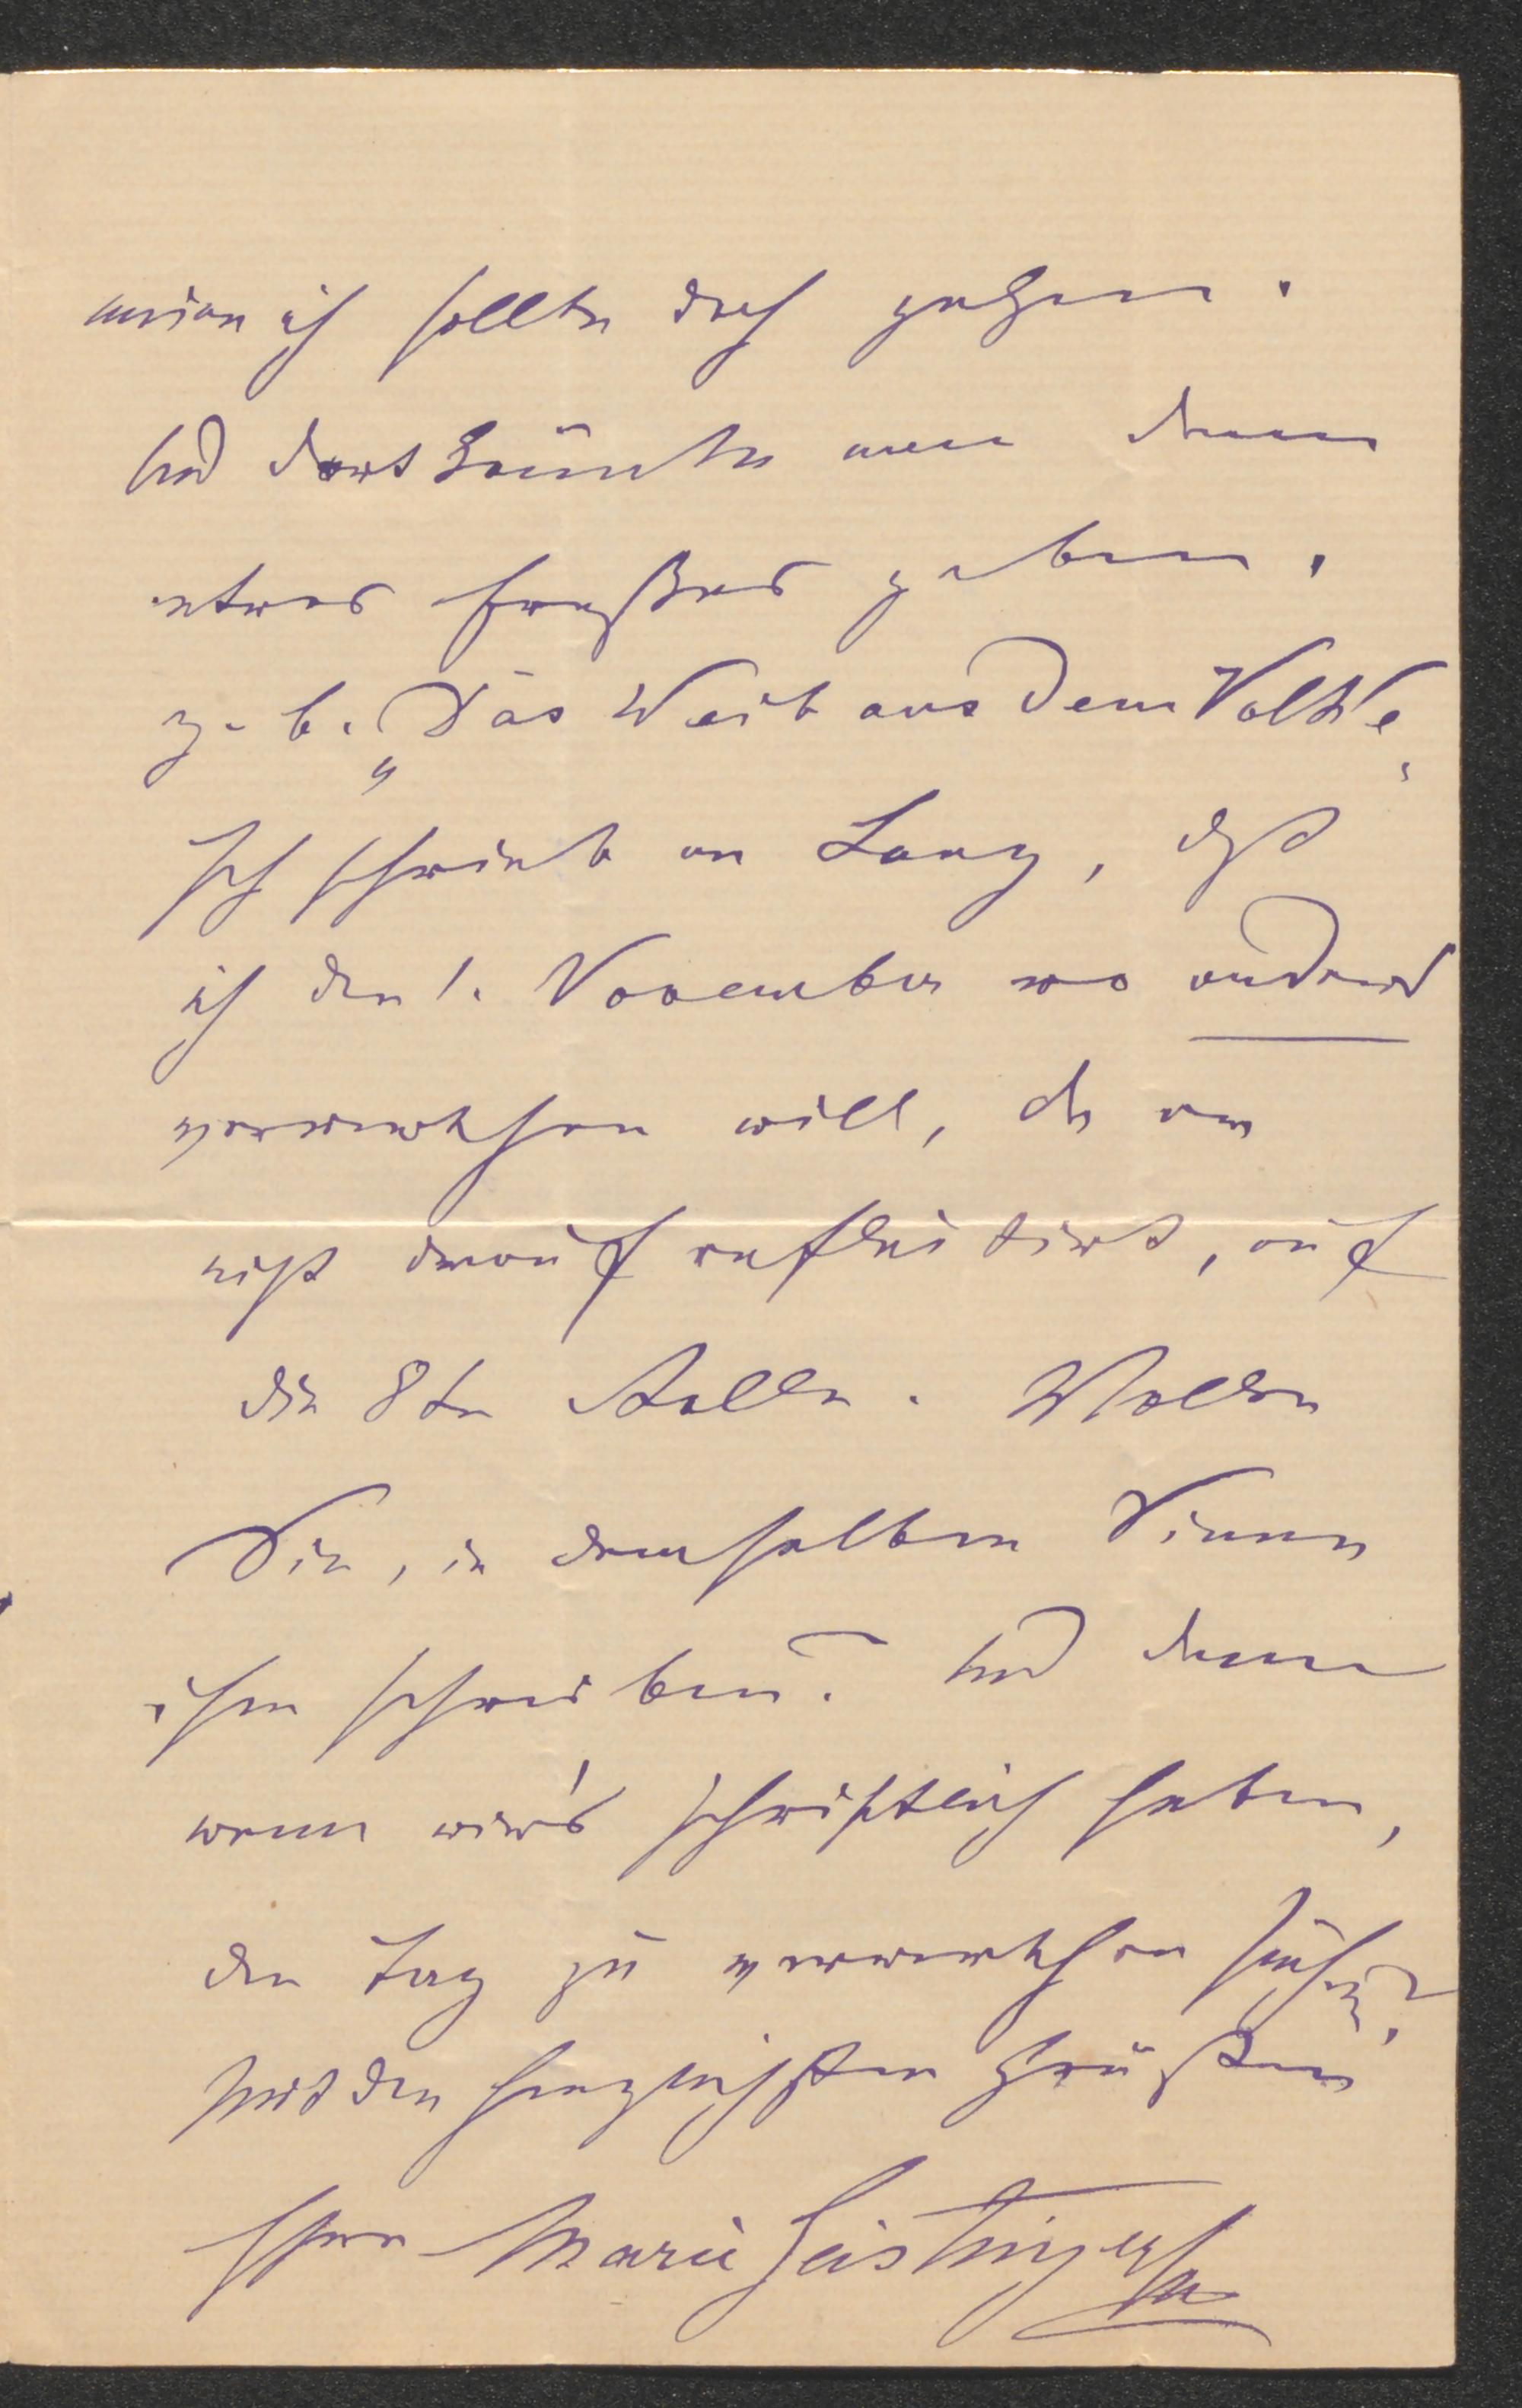 meinen ich sollte doch gehen.
Und dort könnte man dann
etwas Großes geben,
z. b. „Das Weib aus dem Volke“
Ich schrieb an Lang, daß
ich den 1. November wo anders
verwerthen will, da er
nicht darauf reflectirt, auf
die 8te Rolle. Wollen
Sie, in demselben Sinne
ihm schreiben? Und dann
wenn wir's schriftlich haben,
den Tag zu verwerthen suchen?
Mit den herzlichsten Grüßen
Ihre Marie Geistinger